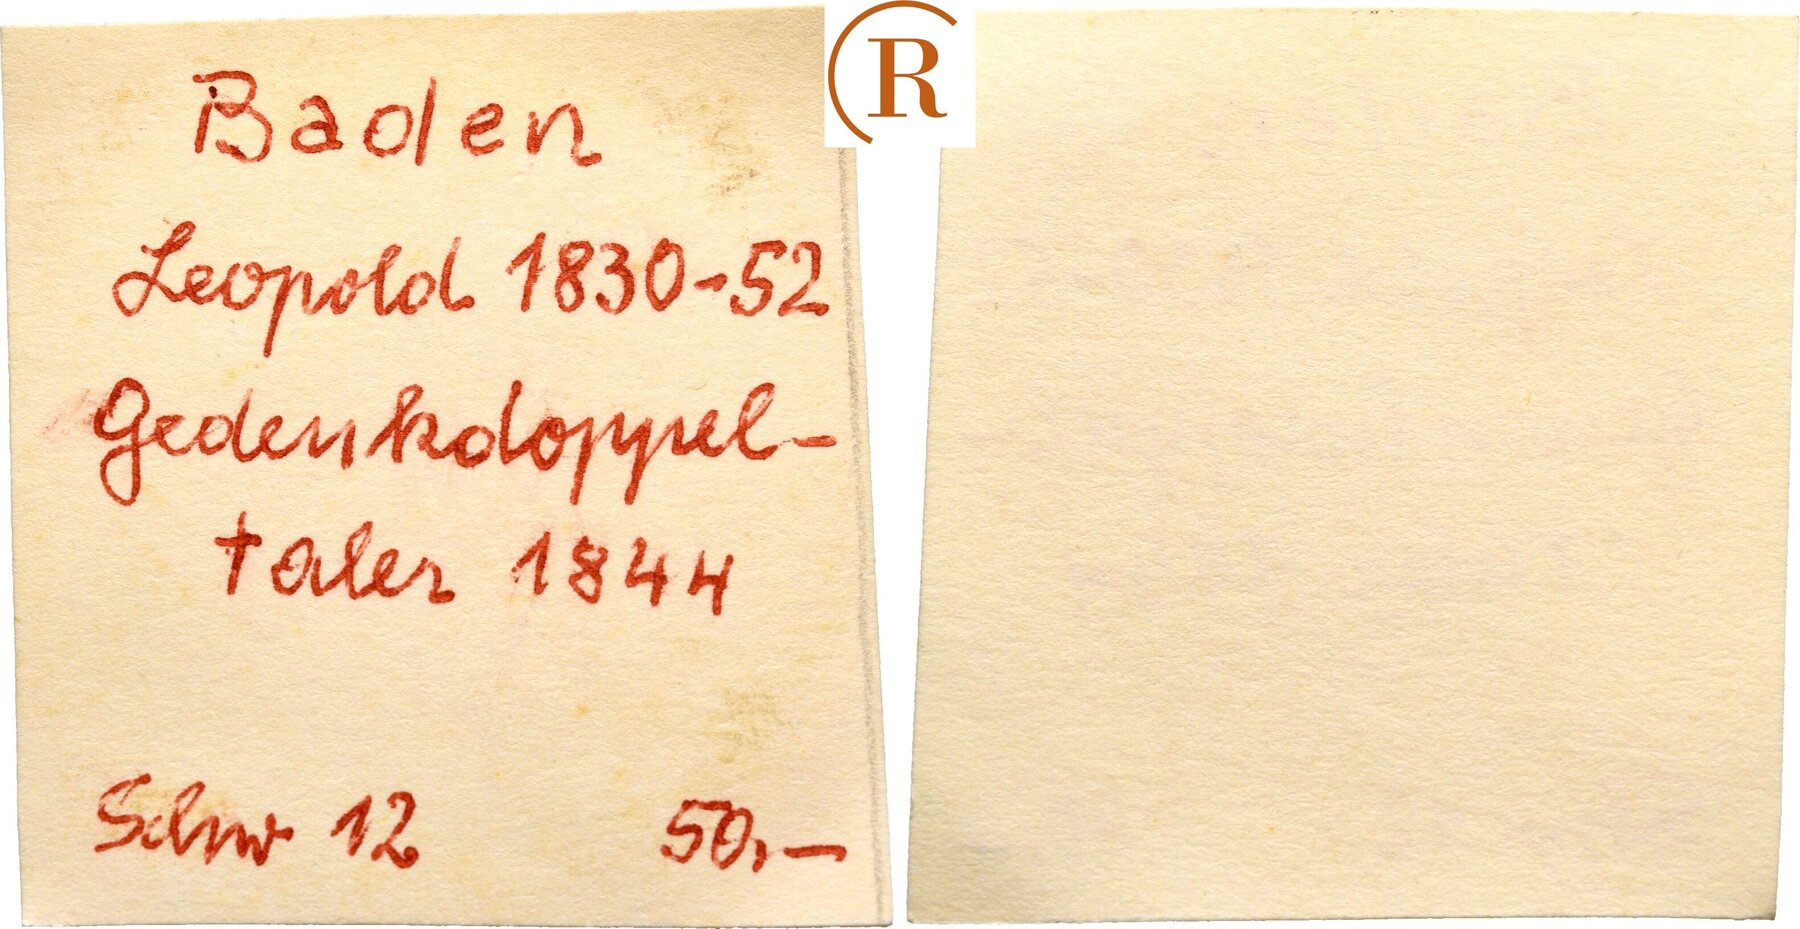 Baden
Leopold 1830-52
Gedenkdoppel-
taler 1844
Schw 12 50,-
R